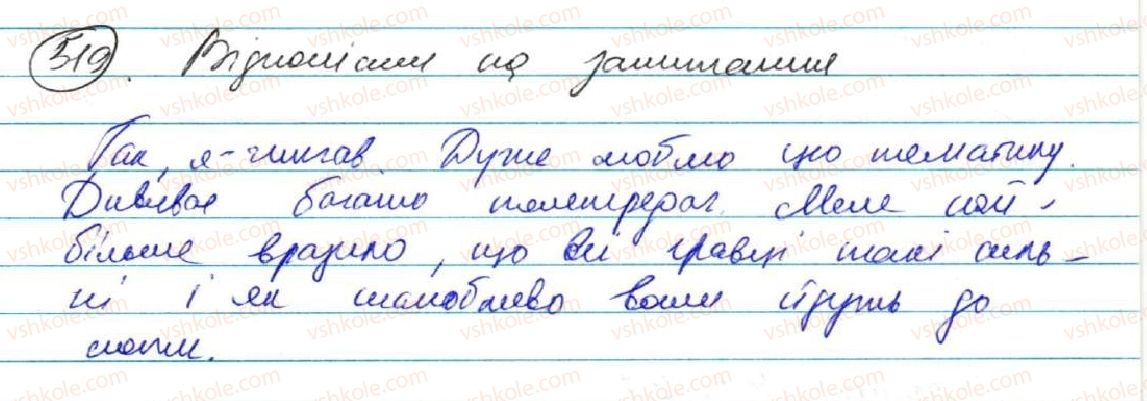 519. Відповісти на запитання
Так, я-читав Дуже люблю цю тематику.
Дивився багато телепередач. Мене най-
більше вразило, що всі гравці такі силь-
ні і як шанобливо вони йдуть до
мети.